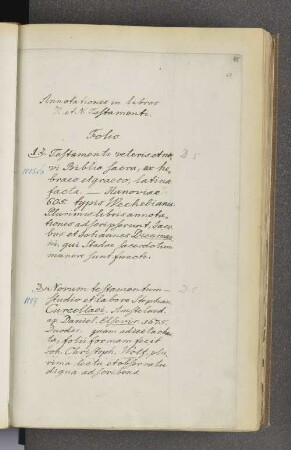 Annotationes in libros
V. et N. Testamenti
Folio
1.) Testamenti veteris et no- D 5
vi Biblia sacra, ex he-
braeo et graeco, latina
facta. — Hanoviae
605. typis Wechelianis
Plurimis libris annota-
tiones adscripserunt, Jaco-
bus et Johannes Diecman-
ni, qui Stadae sacerdotum
munere sunt functi.
2.) Novum testamentum — D 5
studio et labore Stephani
Curcellaei. Amstelod.
ap. Daniel. Elsevir. 1675.
Duodec. quam ad se char-
ta, folii formam fecit
Joh. Christoph. Wolf, plu-
rima lectu et observatu
digna adscribens